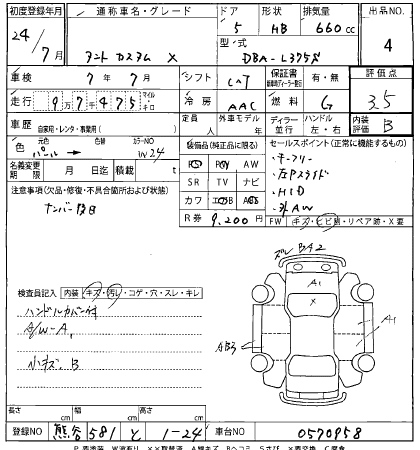 初度登録年月 通称車名・グレード ドア 形状 排気量 出品NO.
24/7月 タント カスタム X 5 HB 660cc 4
型式 DBA-L375S
車検 7年7月 シフト CAT 保証書 有・無 評価点
走行 9万7千475 マイル キロ 冷房 AAC 燃料 G 3.5
車歴 自家用・レンタ・事業用( ) 定員 人 外車モデル 年 ディーラー 並行 ハンドル 左・右 内装評価 B
色 元色 パール 色替 カラーNO W24
装備品(純正品に限る) セールスポイント(正常に機能するもの)
名義変更期限 月 日迄 積載 t
PS PW AW
SR TV ナビ
カワ エアB ABS
R券 9,200円
・キーフリー
・左Pスライド
・HID
・外AW
FW キズ・ヒビ割・リペア跡・X要
注意事項(欠品・修復・不具合箇所および状態)
ナンバー后日
ズレ B3A2
検査員記入 内装 キズ・汚レ・コゲ・穴・スレ・キレ
ハンドルカバー付
A/W-A1
小キズ、B
A1
X
AB3
A1
長さ cm 幅 cm 高さ cm
登録NO 熊谷 581 と 1-24 車台NO 0570958